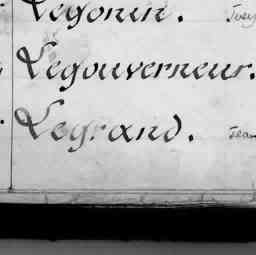 Legonin.
Legouverneur.
Legrand. Jean